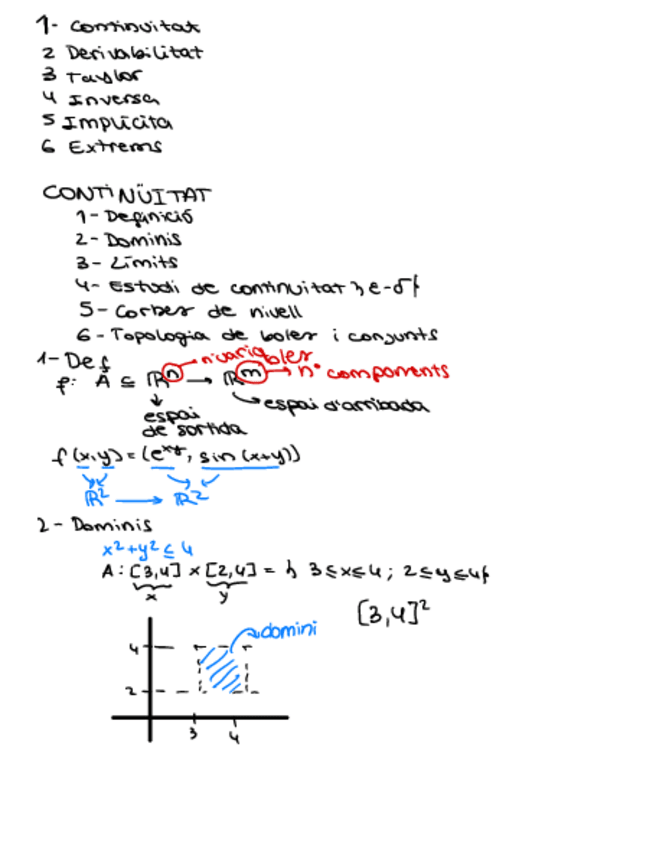 1- Continuitat
2 Derivabilitat
3 Taylor
4 Inversa
5 Implícita
6 Extrems
CONTINÜITAT
1- Definició
2- Dominis
3- Límits
4- Estudi de continuitat } e-δ {
5- Corbes de nivell
6- Topologia de boles i conjunts
1- Def
n·variables
f: A ⊆ ℝⁿ → ℝᵐ → nº components
espai de sortida
espai d'arribada
f(x,y) = (e^xy, sin(x+y))
ℝ² → ℝ²
2- Dominis
x²+y² ≤ 4
A: [3,4] × [2,4] = } 3≤x≤4; 2≤y≤4 {
x y
[3,4]²
domini
4
2
3 4